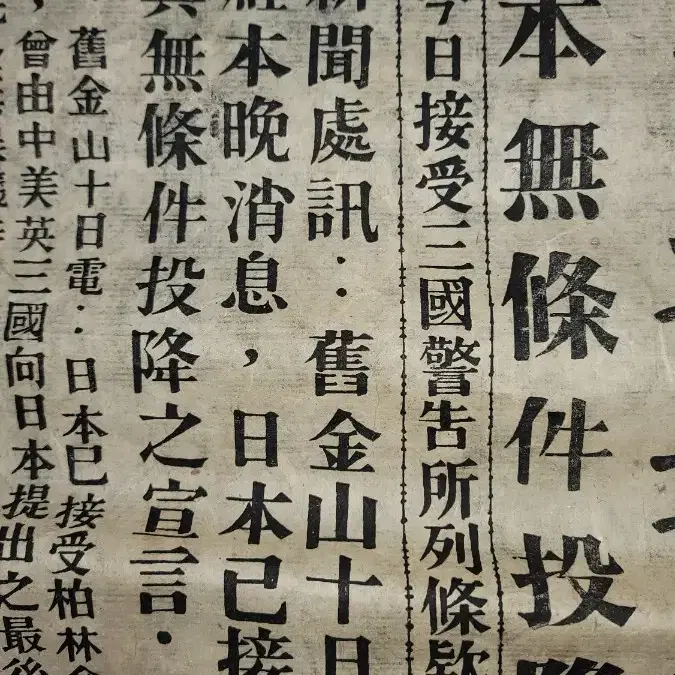 本無條件投降
今日接受三國警告所列條欵
新聞處訊：舊金山十日
本晚消息，日本已接
無條件投降之宣言．
舊金山十日電：日本已接受柏林
，曾由中美英三國向日本提出之最後